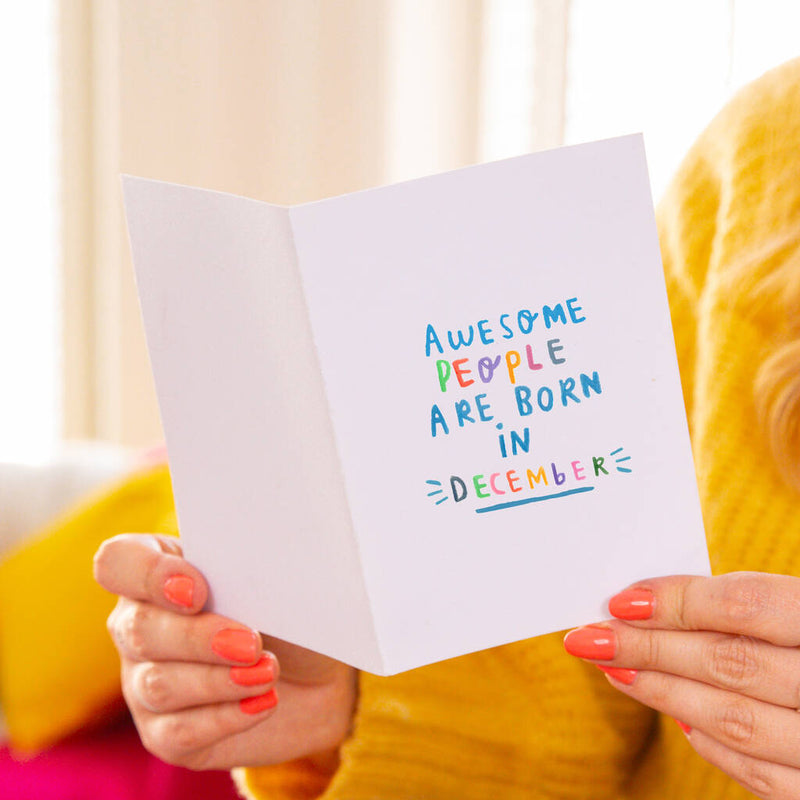 AWESOME
PEOPLE
ARE BORN
IN
DECEMBER